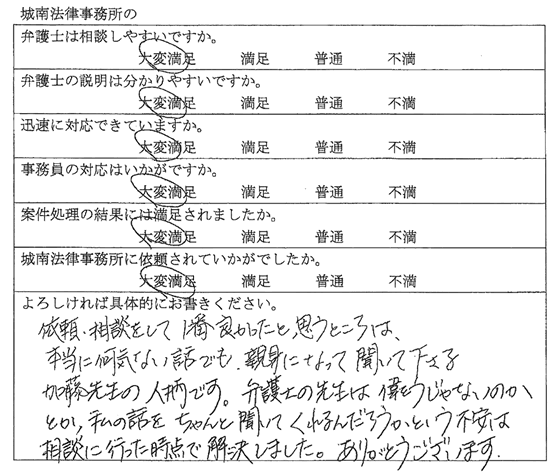 城南法律事務所の
弁護士は相談しやすいですか。
大変満足 満足 普通 不満
弁護士の説明は分かりやすいですか。
大変満足 満足 普通 不満
迅速に対応できていますか。
大変満足 満足 普通 不満
事務員の対応はいかがですか。
大変満足 満足 普通 不満
案件処理の結果には満足されましたか。
大変満足 満足 普通 不満
城南法律事務所に依頼されていかがでしたか。
大変満足 満足 普通 不満
よろしければ具体的にお書きください。
依頼・相談をして1番良かったと思うところは、
本当に何気ない話でも、親身になって聞いて下さる
加藤先生の人柄です。弁護士の先生は偉そうじゃないのか
とか、私の話をちゃんと聞いてくれるんだろうかという不安は
相談に行った時点で解決しました。ありがとうございます.